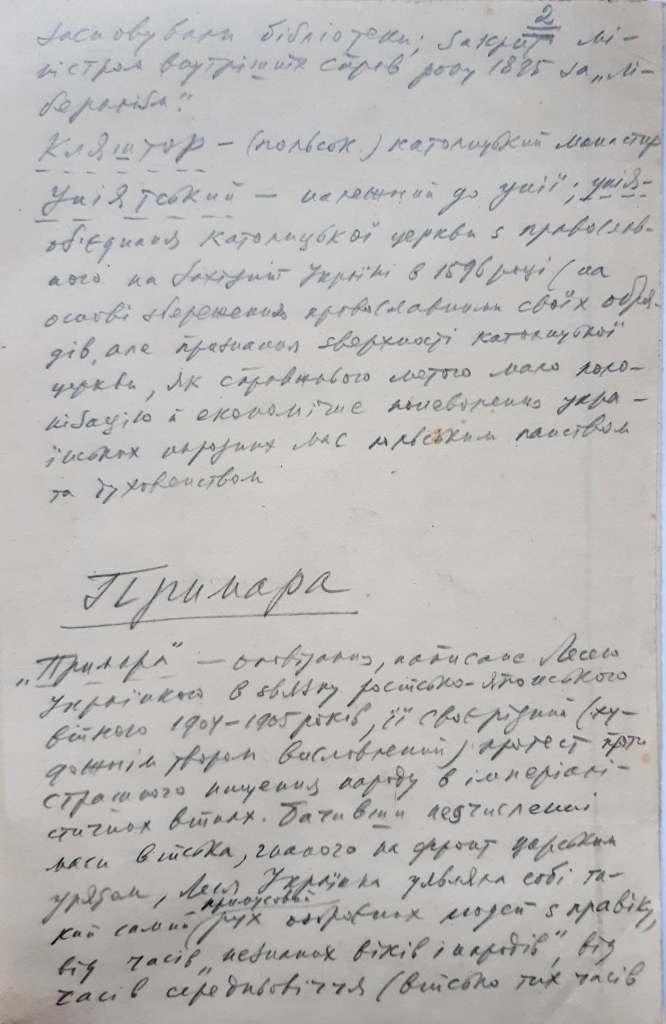 2
засновували бібліотеки; закриті мі-
ністром внутрішніх справ року 1895 за „лі-
бералізм“.
Кляштор – (польськ.) католицький монастир
Уніятський – належний до унії; унія-
об'єднання католицької церкви з православ-
ною на Західній Україні в 1596 році (на
основі збереження православними своїх обря-
дів, але признання зверхності католицької
церкви, як справжньою метою мало коло-
нізацію й економічне поневолення укра-
їнських народних мас польським панством
та духовенством
Примара
„Примара“ – оповідання, написане Лесею
Українкою в звязку російсько-японською
війною 1904–1905 років, її своєрідний (ху-
дожнім твором висловлений) протест проти
страшного нищення народу в імперіалі-
стичних війнах. Бачивши незчисленні
маси війська, гнаного на фронт царським
урядом, Леся Українка уявляла собі та-
кий самий примусовий рух озброєних людей з правіку,
від часів „незнаних віків і народів“, від
часів середньовіччя (військо тих часів